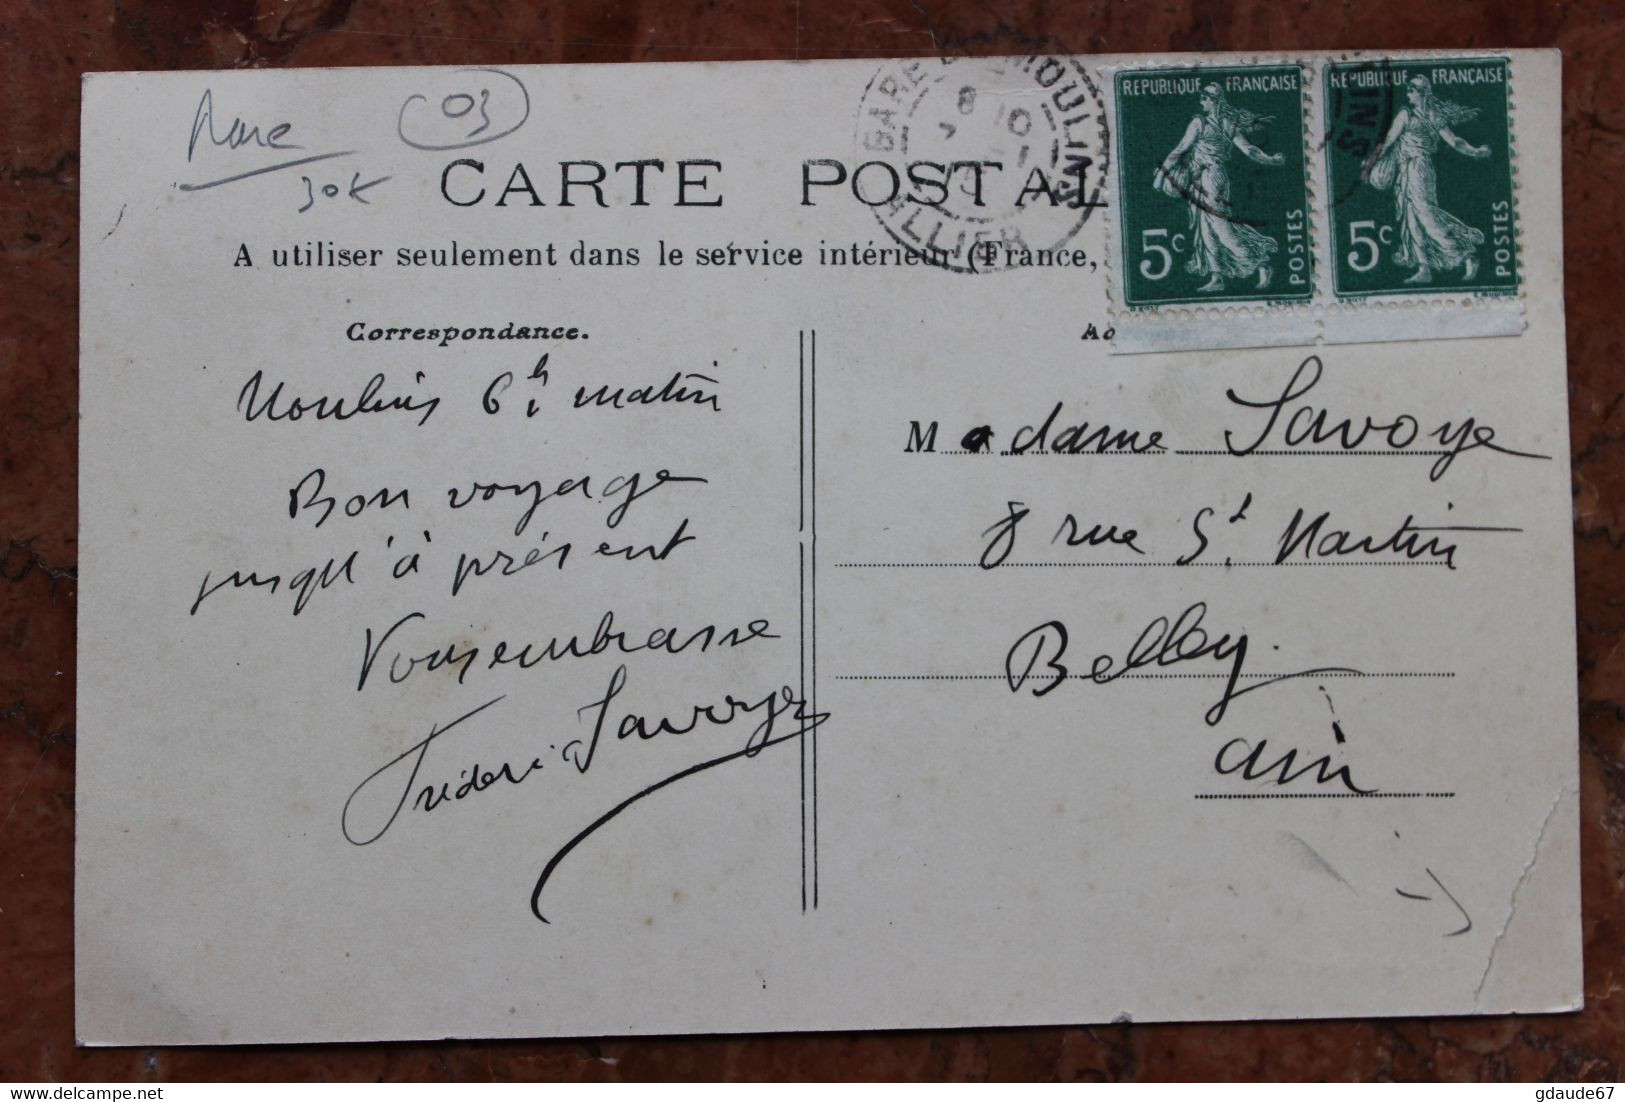 Rare
03
30€
CARTE POSTALE
A utiliser seulement dans le service intérieur (France,
GARE DE MOULINS
8 10
ALLIER
REPUBLIQUE FRANÇAISE
5c
POSTES
REPUBLIQUE FRANÇAISE
5c
POSTES
Correspondance.
Moulins 6h matin
Bon voyage
jusqu'à présent
Vous embrasse
Frédéric Savoye
Madame Savoye
8 rue St. Martin
Belley.
Ain
gdaude67